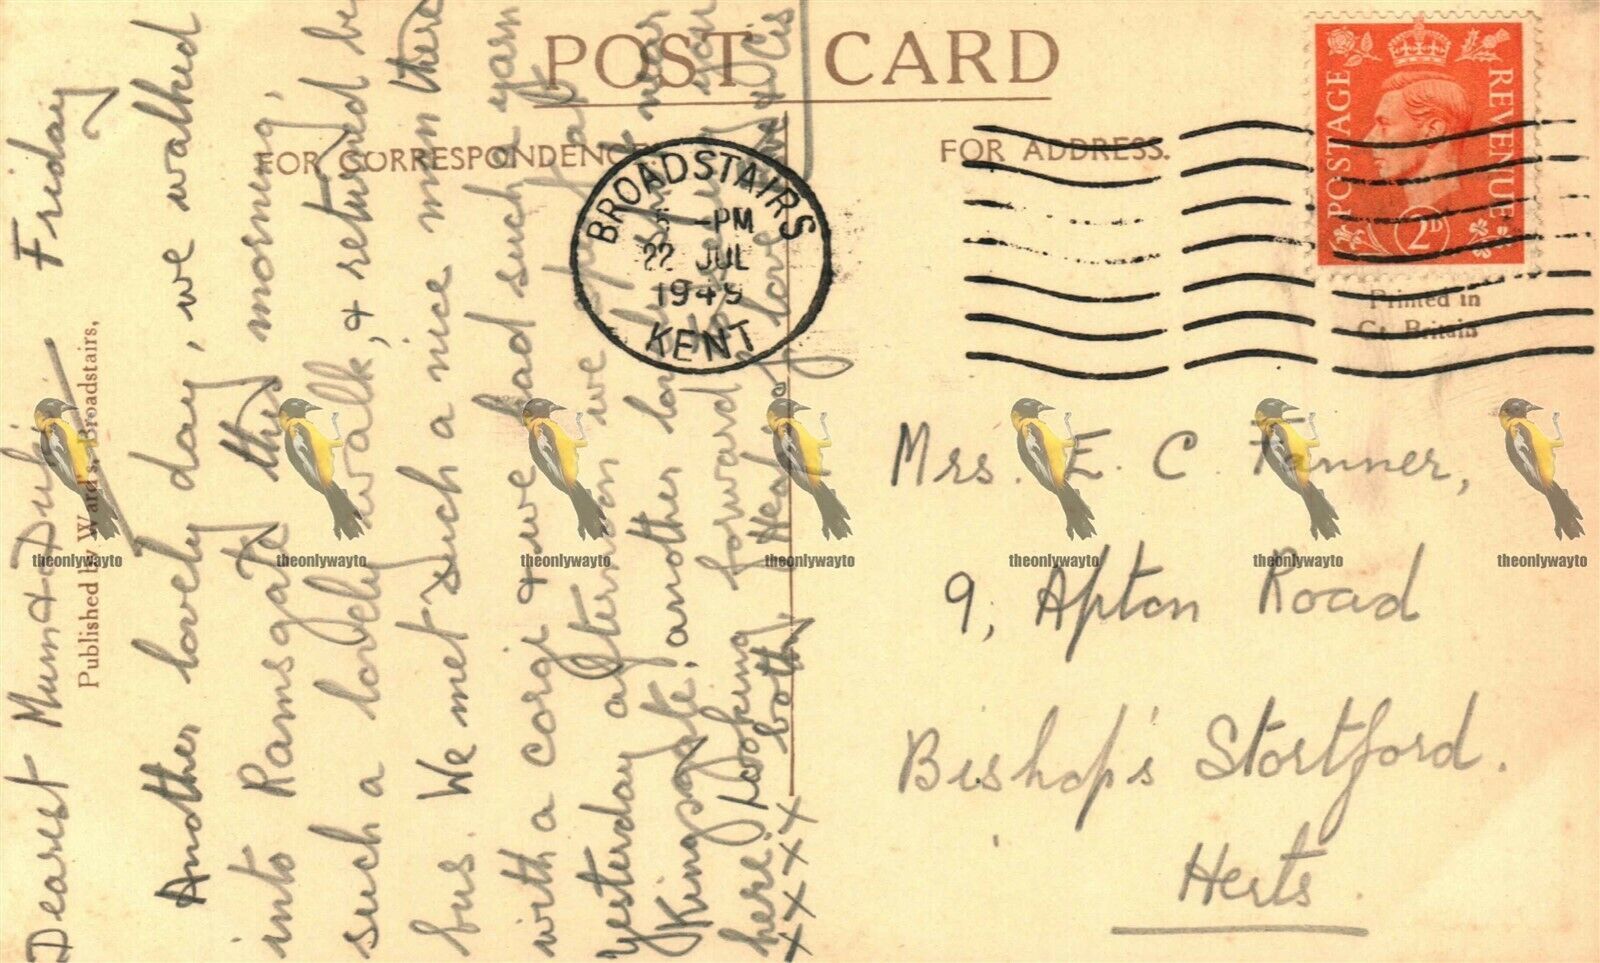 POST CARD
FOR CORRESPONDENCE.
FOR ADDRESS.
BROADSTAIRS
5 - PM
22 JUL
1949
KENT
POSTAGE REVENUE
2D
Printed in
Gt. Britain
Published by Ward's, Broadstairs,
Friday
Dearest Mum &
Another lovely day, we walked
into Ramsgate this morning,
such a lovely walk, & returned by
bus. We met such a nice man there
with a corgi & we had such a yarn
Yesterday afternoon we
Kingsgate, another lovely
here. Looking forward
both. love
x x x x x
Mrs. E. C. Tanner,
9, Apton Road
Bishop's Stortford.
Herts.
theonlywayto
theonlywayto
theonlywayto
theonlywayto
theonlywayto
theonlywayto
theonlywayto